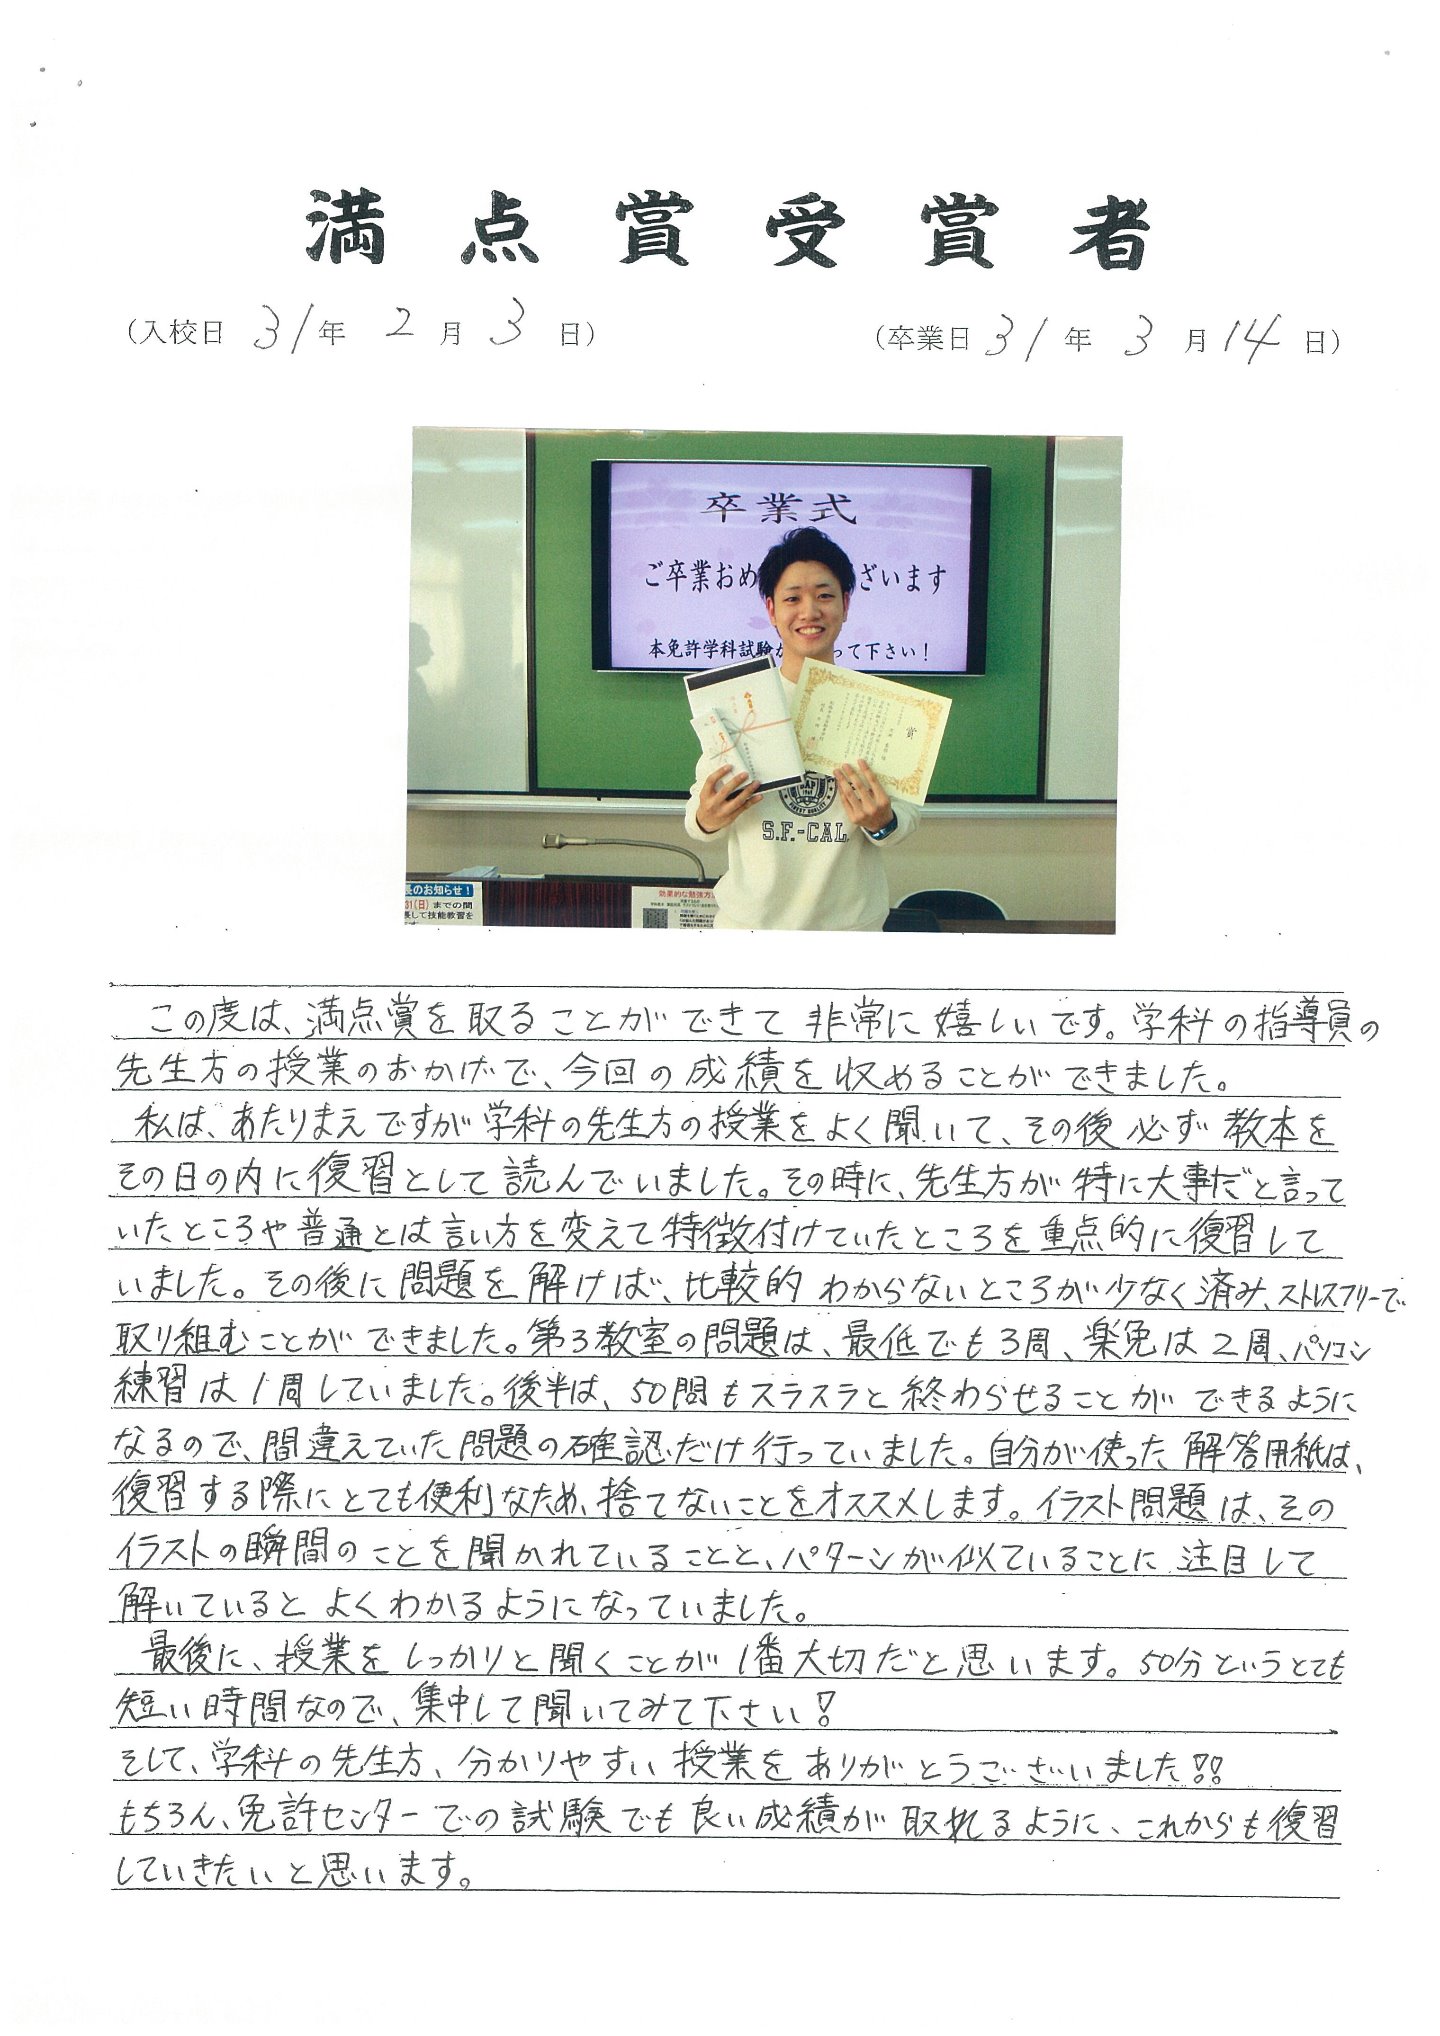 満点賞受賞者
（入校日 31年 2月 3日） （卒業日 31年 3月 14日）
卒業式
ご卒業おめ ざいます
本免許学科試験 って下さい！
賞
GAP
1969
FINEST QUALITY
S.F.-CAL
長のお知らせ！
31(日)までの間
長して技能教習を
効果的な勉強方
この度は、満点賞を取ることができて非常に嬉しいです。学科の指導員の
先生方の授業のおかげで、今回の成績を収めることができました。
私は、あたりまえですが学科の先生方の授業をよく聞いて、その後必ず教本を
その日の内に復習として読んでいました。その時に、先生方が特に大事だと言って
いたところや普通とは言い方を変えて特徴付けていたところを重点的に復習して
いました。その後に問題を解けば、比較的わからないところが少なく済み、ストレスフリーで
取り組むことができました。第3教室の問題は、最低でも3周、楽免は2周、パソコン
練習は1周していました。後半は、50問もスラスラと終わらせることができるように
なるので、間違えていた問題の確認だけ行っていました。自分が使った解答用紙は、
復習する際にとても便利なため、捨てないことをオススメします。イラスト問題は、その
イラストの瞬間のことを聞かれていることと、パターンが似ていることに注目して
解いているとよくわかるようになっていました。
最後に、授業をしっかりと聞くことが1番大切だと思います。50分というとても
短い時間なので、集中して聞いてみて下さい！
そして、学科の先生方、分かりやすい授業をありがとうございました!!
もちろん、免許センターでの試験でも良い成績が取れるように、これからも復習
していきたいと思います。